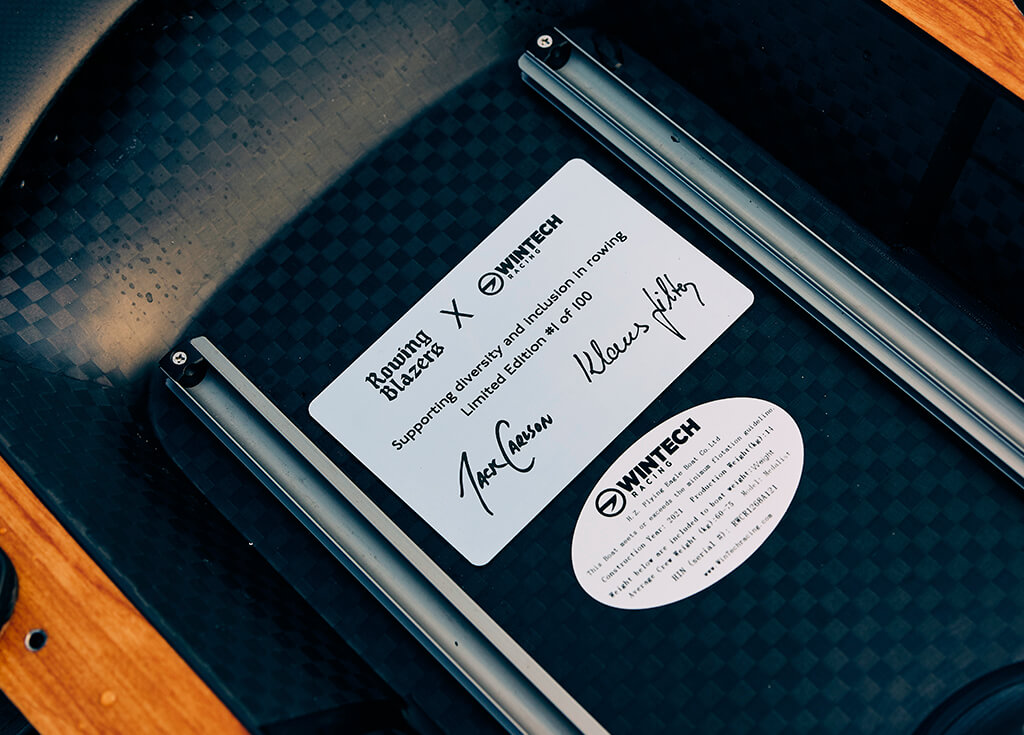 Rowing
Blazers
X
WINTECH
RACING
Supporting diversity and inclusion in rowing
Limited Edition #1 of 100
Jack Carlson
Klaus
WINTECH
RACING
H.Z. Flying Eagle Boat Co.Ltd
This Boat meets or exceeds the minimum flotation guideline.
Construction Year: 2021 Production Weight(kg):14
Weight below are included to boat weight:Weight
Average Crew Weight (kg):60-75 Model: Medalist
HIN (serial #): RWCR1268A121
www.WinTechracing.com